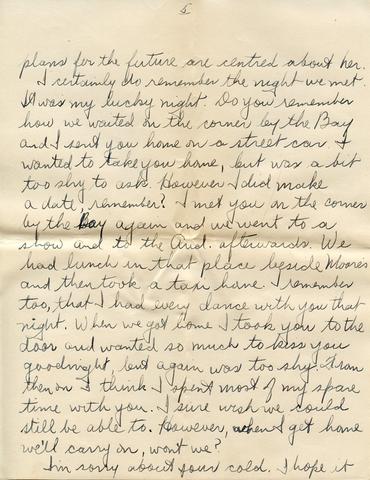 5
plans for the future are centred about her.
I certainly do remember the night we met.
It was my lucky night. Do you remember
how we waited on the corner by the Bay
and I sent you home on a street car. I
wanted to take you home, but was a bit
too shy to ask. However I did make
a date, remember? I met you on the corner
by the Bay again and we went to a
show and to the Aud. afterwards. We
had lunch in that place beside Moores
and then took a taxi home. I remember
too, that I had every dance with you that
night. When we got home I took you to the
door and wanted so much to kiss you
goodnight, but again was too shy. From
then on I think I spent most of my spare
time with you. I sure wish we could
still be able to. However, when I get home
we'll carry on, wont we?
I'm sorry about your cold. I hope it